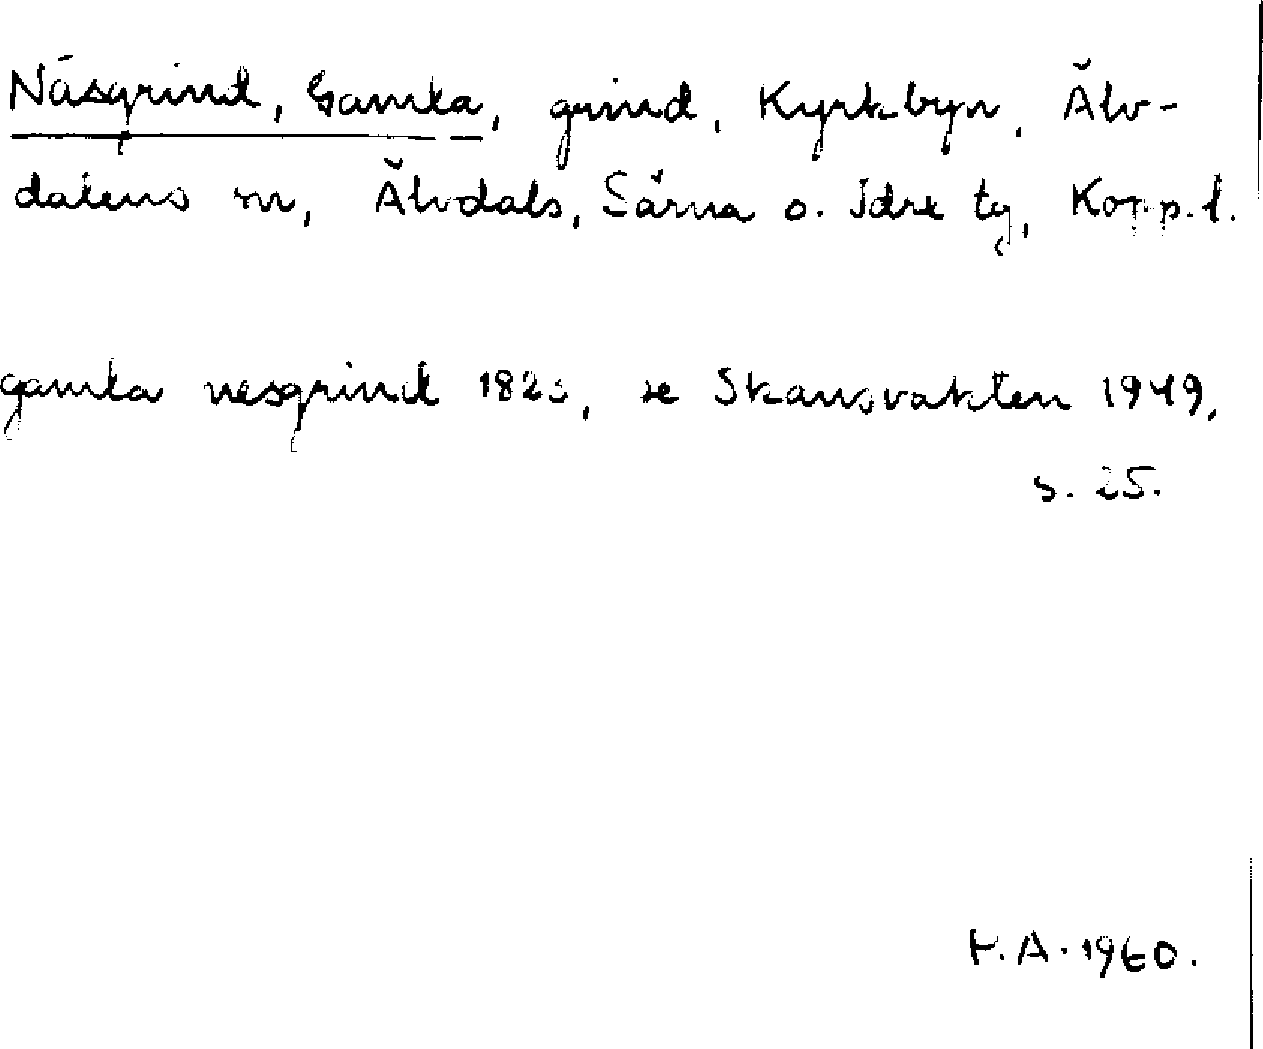 Näsgrind, Gamla, grind, Kyrkbyn, Älv-
dalens sn, Älvdals, Särna o. Idre tg, Kopp. l.
gamla nesgrind 1820, se Skansvakten 1949,
s. 25.
H.A. 1960.